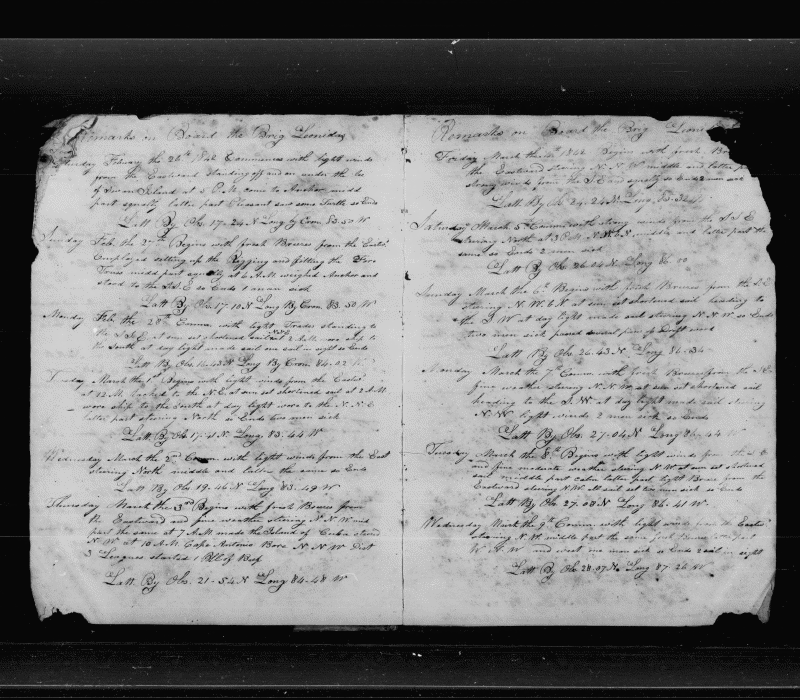 Remarks on Board the Brig Leonidas
Sunday Febuary the 26th 1842 Commences with light winds
from the Eastward Standing off and on under the lee
of Swan Island at 5 P.M. came to Anchor midd
part squaly latter part Pleasant saw some Turtle so Ends
Latt By Obs. 17-24 N Long by Crom. 83.50 W
Sunday Feb. the 27th Begins with fresh Breeses from the East
Employed setting up the Rigging and fitting the Fore
midd part squally at 6 A.M. weighed Anchor and
stood to the S.S.E so Ends 1 man sick
Latt By Obs. 17-10 N Long By Crom. 83.50 W
Monday Feb. the 28th Comm. with light Trades standing to
the S.S.E at sun set shortened sail at 2 A.M. wore ship to
the South at day light made sail one sail in sight so Ends
Latt By Obs. N Long By Crom. 84-02 W
Tuesday March the 1st Begins with light winds from the East
at 12 M. tacked to the N.E. at sun set shortened sail at 2 A.M.
wore ship to the South at day light wore to the N.N.E
latter part stering North so Ends two men sick
Latt By Ob 17- N. Long. 83.44 W
Wednesday March the 2nd Comm. with light winds from the East
stering North middle and latter the same so Ends
Latt By Ob 19.46 N Long 83.49 W
Thursday March the 3rd Begins with fresh Breeses from
the Eastward and fine weather stering N N W mid
part the same at 7 A.M made the Island of Cuba stered
N.W at 10 A.M. Cape Antonio Bore N.N.W Dist
3 Leagues started 1 Bbl of Beef
Latt By Obs. 21-54 N Long 84-48 W
Remarks on Board the Brig Leoni
Friday March the 4th 1842 Begins with fresh
the Eastward stering N.N.W middle and latter
strong winds from the S.E and squaly so Ends 2 men sick
Latt By Ob. 24-24 N Long 85-52 W
Saturday March 5th Comm. with strong winds from the S.S.E
stering North at 3 P.M. N.W.b.N. middle and latter part the
same so Ends 2 men sick
Latt By Ob 26.04 N Long 86 10
Sunday March the 6th Begins with fresh Breeses from the S.E
stering N.W.b.N at sun set shortened sail heading to
the S.W at day light made sail stering N.N.W so Ends
two men sick passed several pieces of Drift wood
Latt By Obs. 26.43 N Long 86-34
Monday March the 7th Comm. with fresh Breeses from the
fine weather stering N.N.W at sun set shortened sail
heading to the S.W. At day light made sail stering
N.W light winds 2 men sick so Ends
Latt By Ob. 27-04 N Long 86-44 W
Tuesday March the 8th Begins with light winds from the S.E
and fine moderate weather stering N.W at sun set shortened
sail middle part calm latter part light Breeses from the
Eastward stering N.W. sick so Ends
Latt By Ob 27.08 N Long 86.41 W
Wednesday March the 9th Comm. with light winds from the East
stering N.W. middle part the same fresh Breeses latter part
W.N.W. and west one man sick so Ends 2 sail in sight
Latt By Ob 28.07 N. Long 87-26 W